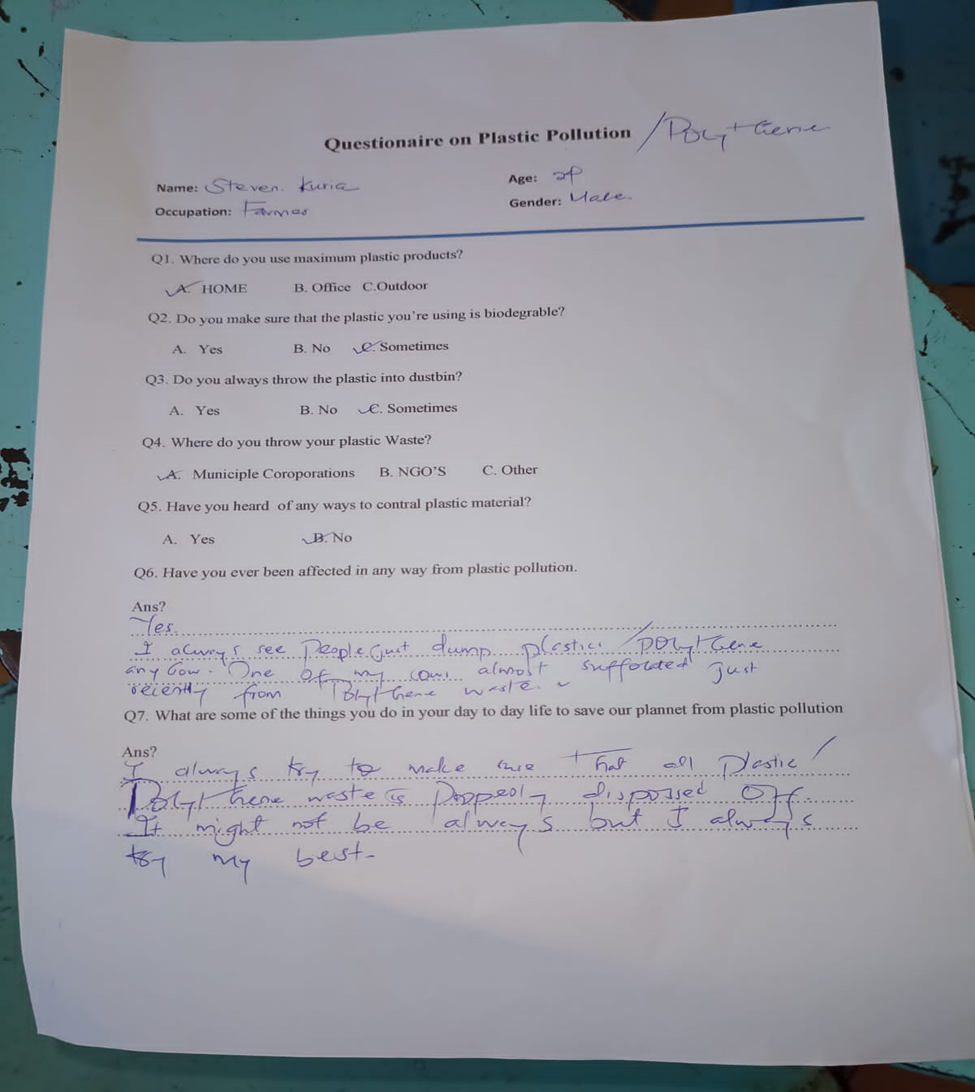 Questionaire on Plastic Pollution /Polythene
Name: Steven. Kuria
Age:
Occupation: Farmer
Gender: Male.
Q1. Where do you use maximum plastic products?
A. HOME B. Office C.Outdoor
Q2. Do you make sure that the plastic you're using is biodegrable?
A. Yes B. No C. Sometimes
Q3. Do you always throw the plastic into dustbin?
A. Yes B. No C. Sometimes
Q4. Where do you throw your plastic Waste?
A. Municiple Coroporations B. NGO'S C. Other
Q5. Have you heard of any ways to contral plastic material?
A. Yes B. No
Q6. Have you ever been affected in any way from plastic pollution.
Ans?
Yes.
I always see People just dump plastics /polythene
any how. One of my cows almost sufforated just
recently from Polythene waste.
Q7. What are some of the things you do in your day to day life to save our plannet from plastic pollution
Ans?
I always try to make sure That all Plastic /
Polythene waste is Proppealy dispossed Off.
It might not be always but I always
try my best.